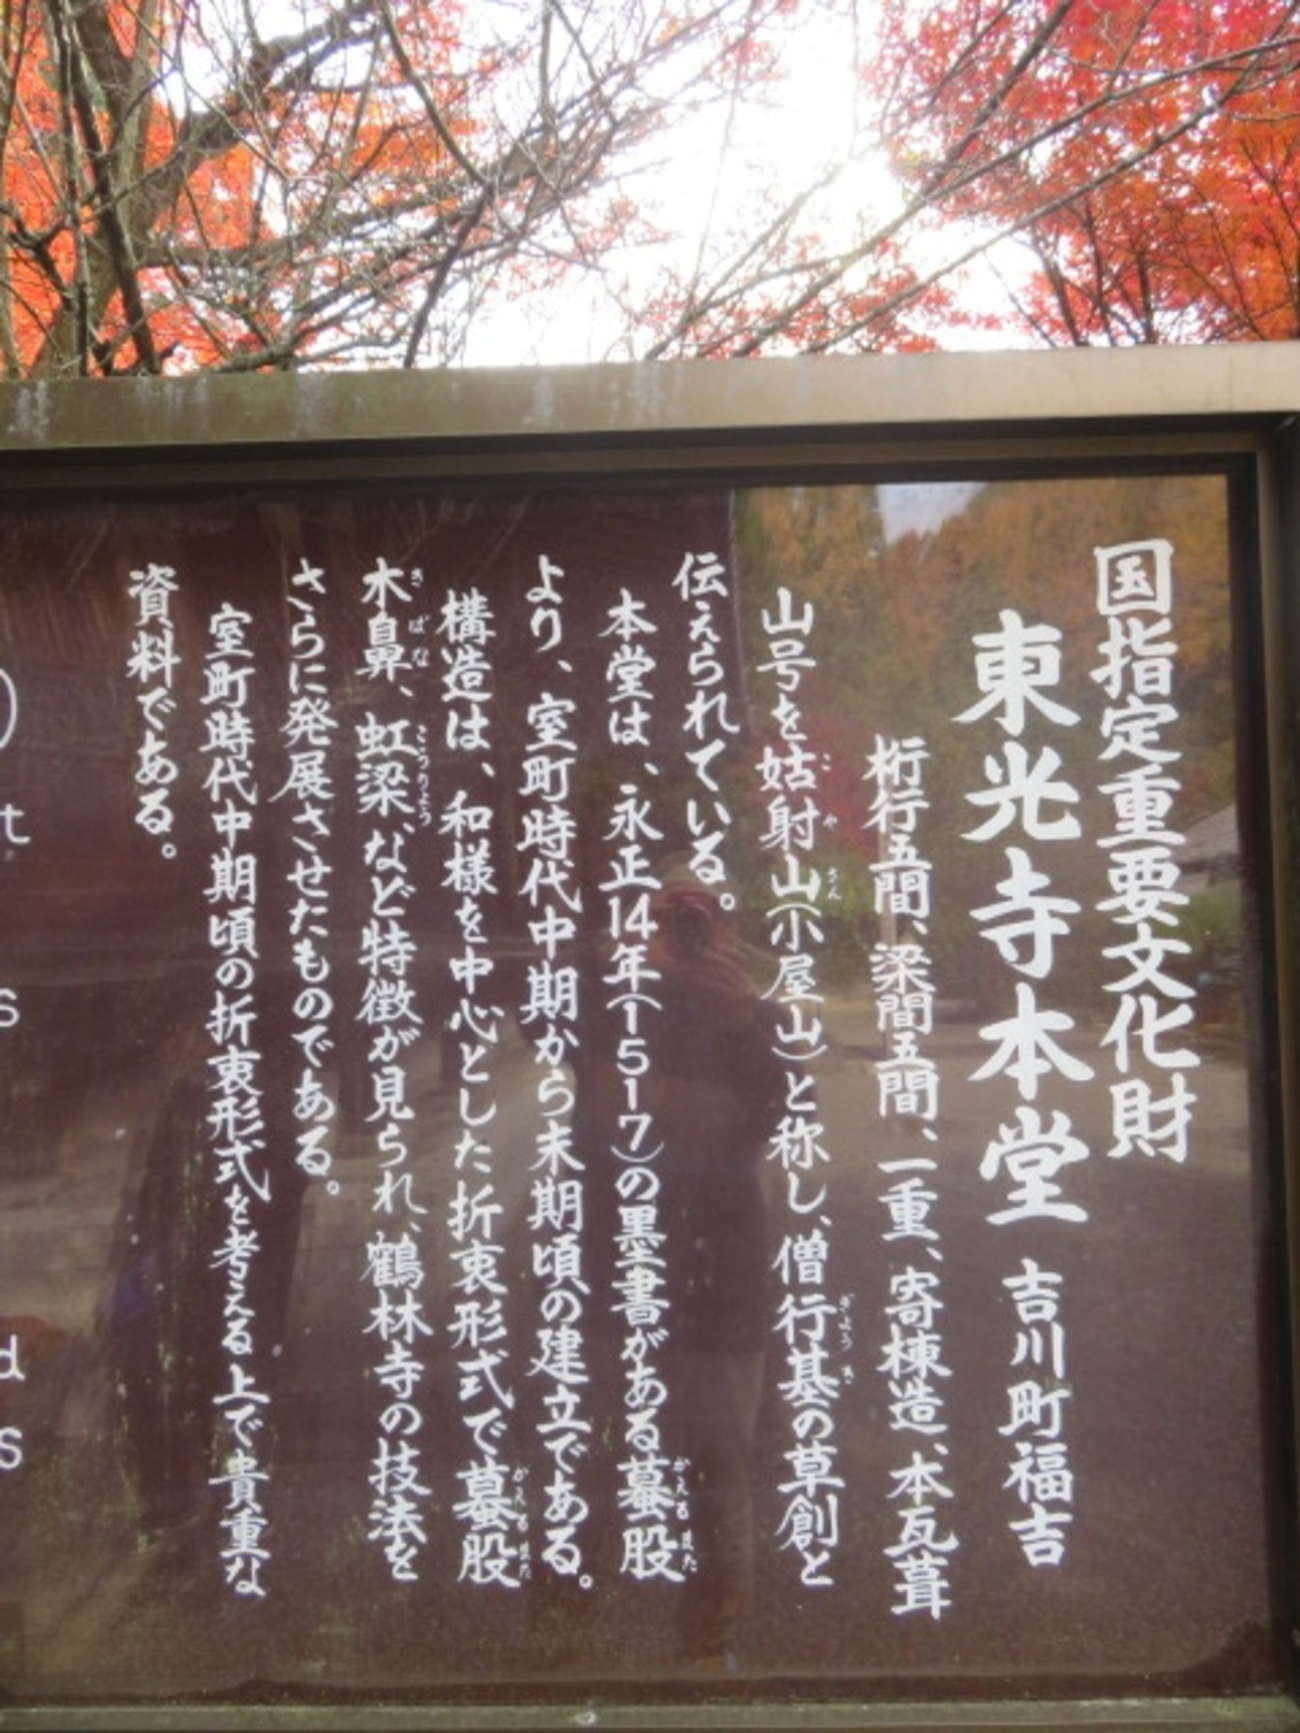 国指定重要文化財
東光寺本堂 吉川町福吉
桁行五間、梁間五間、一重、寄棟造、本瓦葺
山号を姑射山(小屋山)と称し、僧行基の草創と
伝えられている。
本堂は、永正14年(1517)の墨書がある蟇股
より、室町時代中期から末期頃の建立である。
構造は、和様を中心とした折衷形式で蟇股
木鼻、虹梁、など特徴が見られ、鶴林寺の技法を
さらに発展させたものである。
室町時代中期頃の折衷形式を考える上で貴重な
資料である。